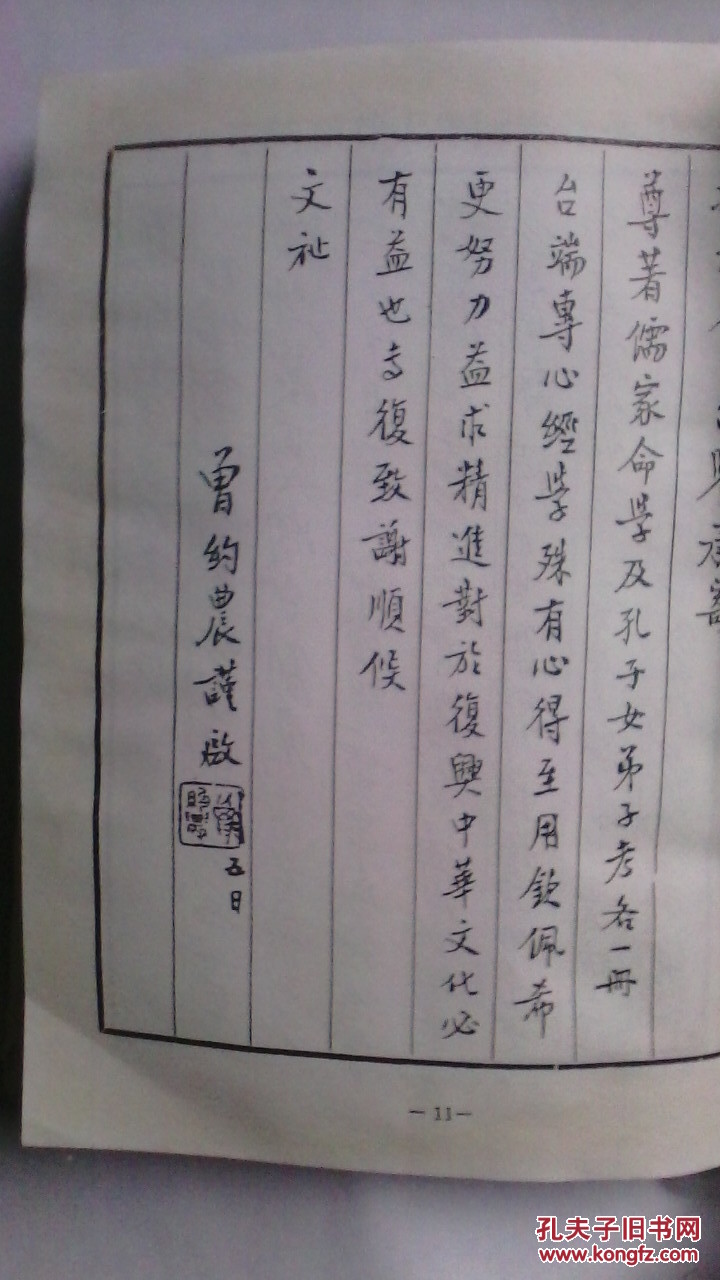 尊著儒家命学及孔子女弟子考各一冊
台端專心經学殊有心得至用欽佩希
更努力益求精進對於復興中華文化必
有益也专復致謝順候
文祉
曾約農謹啟
五日
－11－
孔夫子旧书网
www.kongfz.com